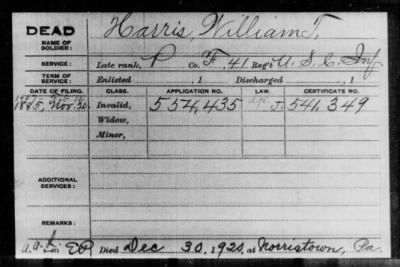 DEAD Harris, William T.
NAME OF SOLDIER:
SERVICE: Late rank, P Co. F, 41 Reg't U. S. C. Inf
TERM OF SERVICE: Enlisted , 1 Discharged , 1
DATE OF FILING. CLASS. APPLICATION NO. LAW. CERTIFICATE NO.
1885, Nov. 20. Invalid, 554,435 J. 541,349
Widow,
Minor,
ADDITIONAL SERVICES:
REMARKS:
Died Dec 30, 1920, at Norristown, Pa.